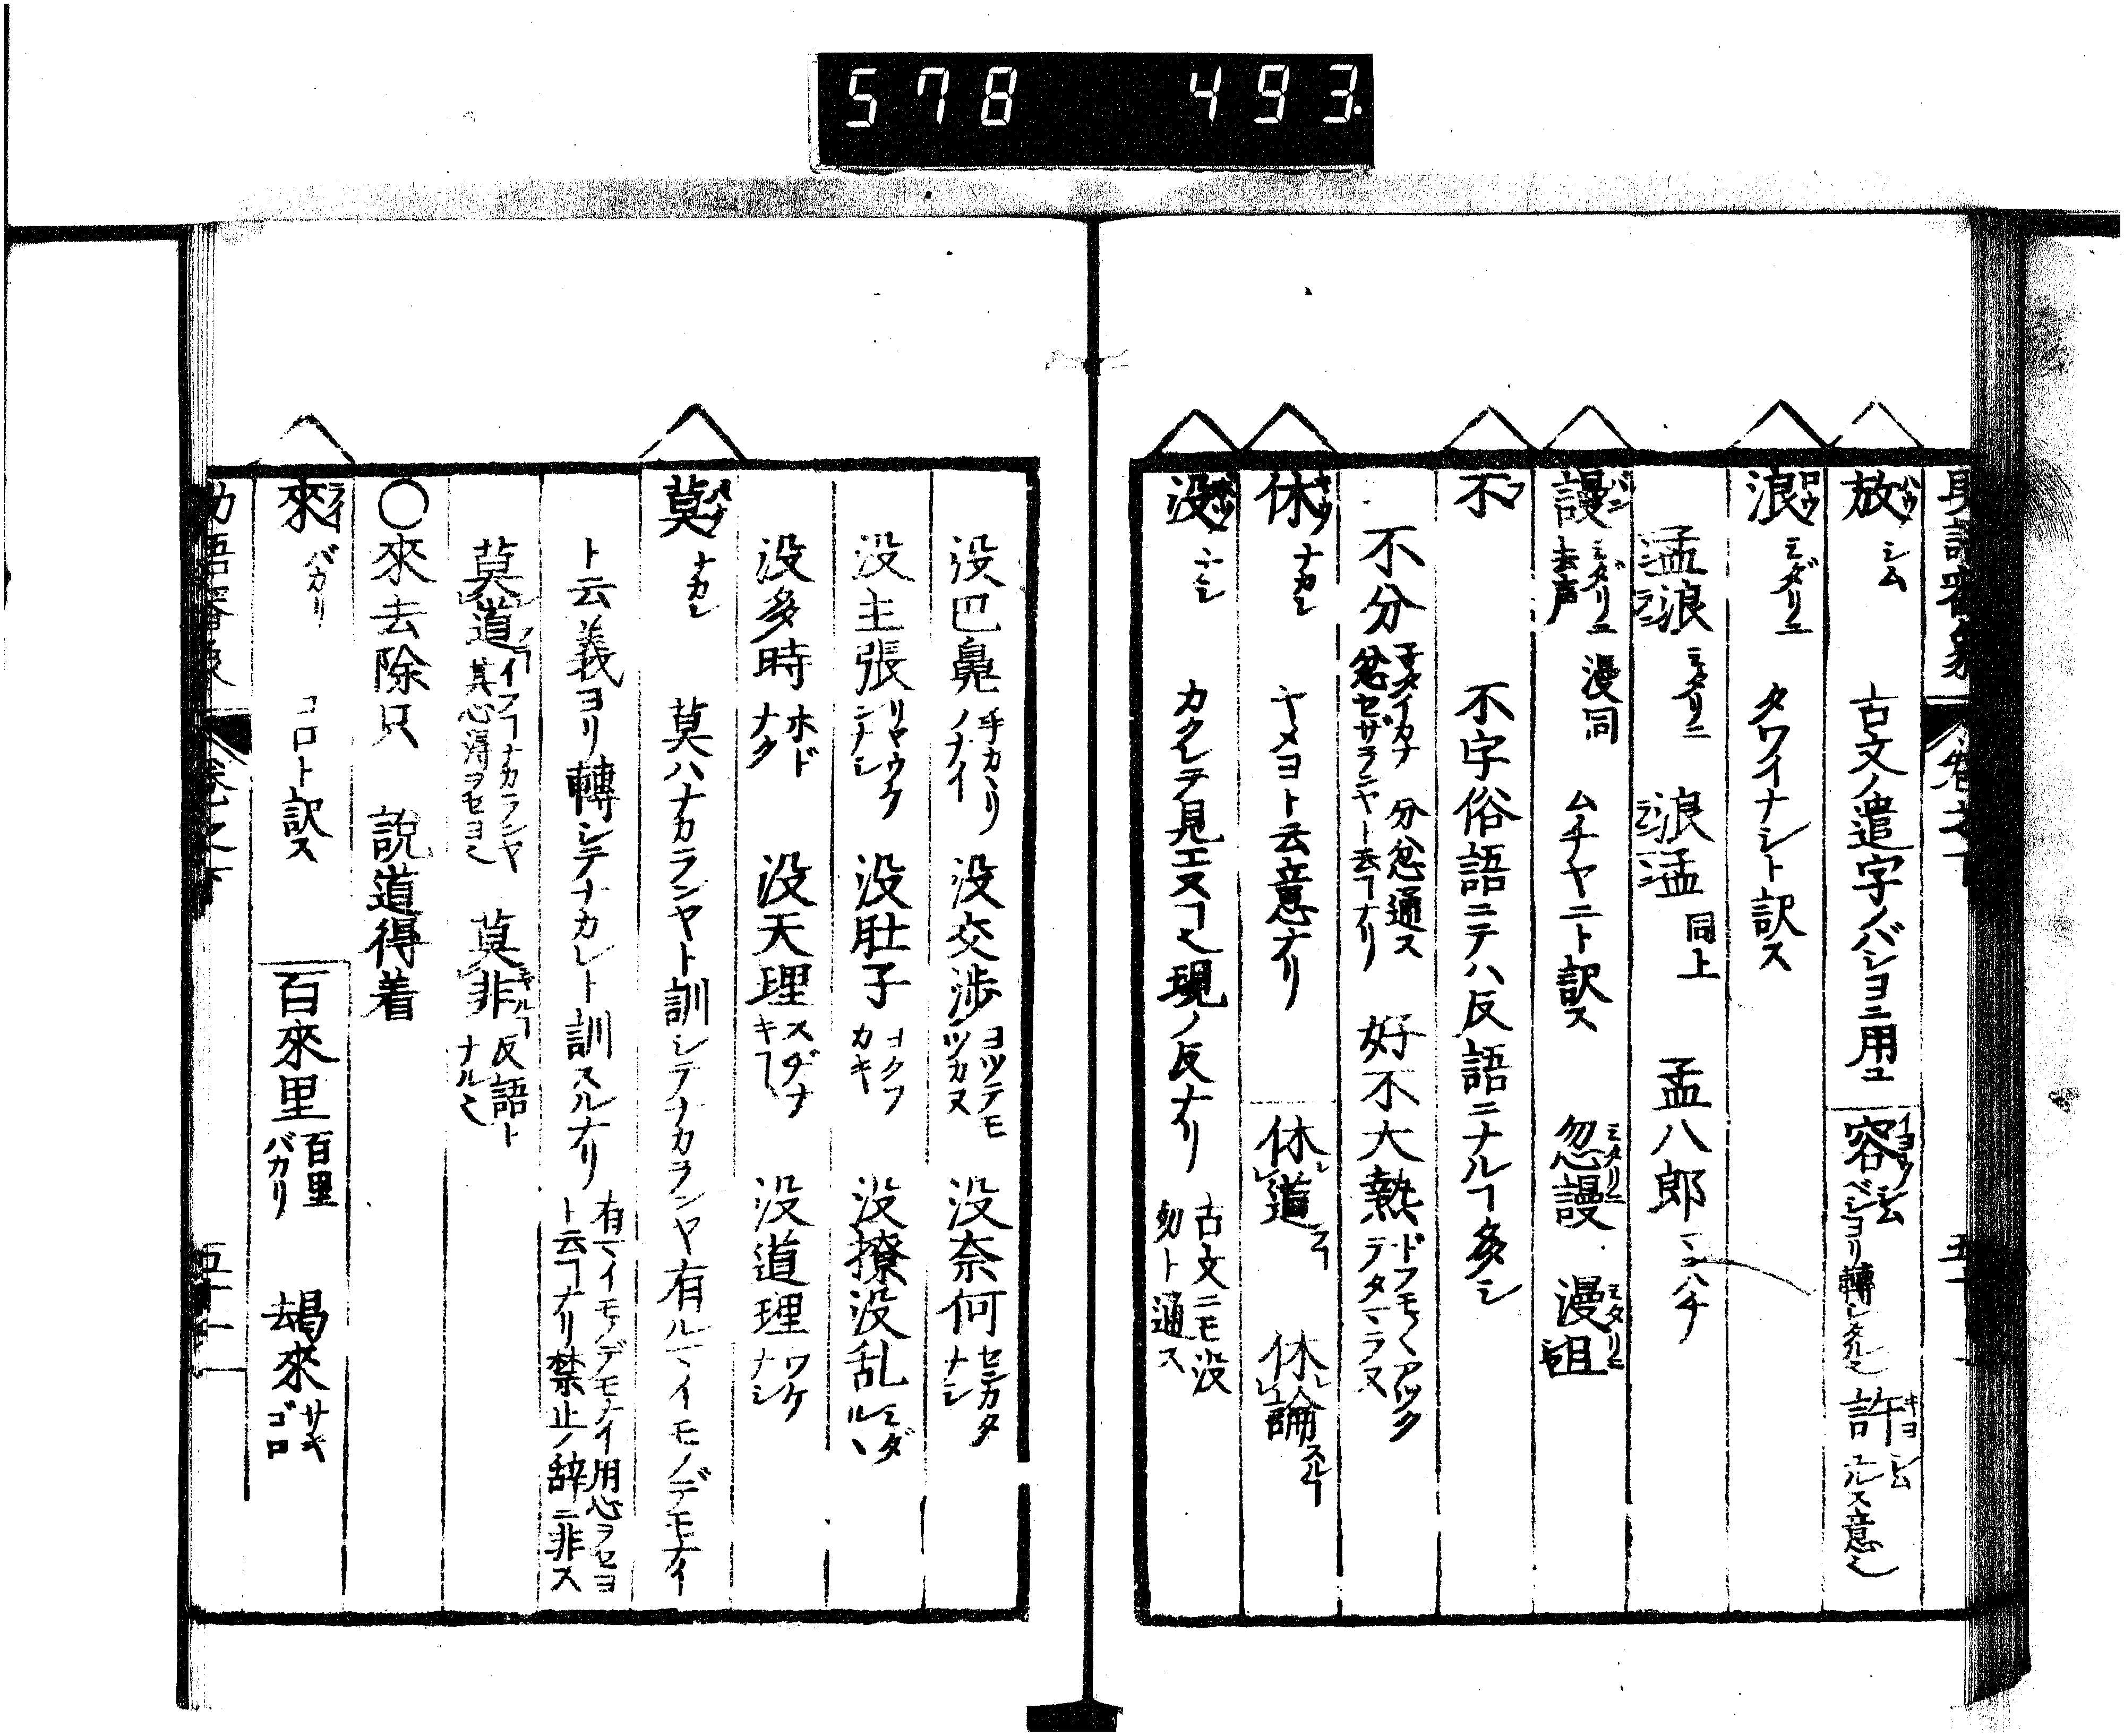 578 493.
放 ハウ シム 古文ノ遣字ノバシヨニ用ユ 容 ヨウ シム ベシヨリ轉シタル也 許 キヨ シム ユルス意也
浪 ロウ ミダリニ タワイナシト訳ス
孟浪 ミダリニ 浪孟 同上 孟八郎
謾 去声 ミダリニ 漫同 ムチヤニト訳ス 忽謾 ミタリニ 漫 ミタリニ
不 フ 不字俗語ニテハ反語ニナルヿ多シ
不分 分忿通ス 忿セザランヤト云ヿナリ 好不大熱 ドフモ〱アツク テタマラヌ
休 キウ ナカレ ヤメヨト云意ナリ 休道 フヿ 休論 スルヿ
没 ボツ ナシ カクレテ見エヌヿ也現ノ反ナリ 古文ニモ没 勿ト通ス
没巴鼻 手カヽリ ノナイ 没交渉 ヨツテモ ツカヌ 没奈何 センカタ ナシ
没主張 リヤウケ ンナシ 没肚子 カキ 没撩没乱 ミダ ルヽ
没多時 ホド ナク 没天理 スヂナ キヿ 没道理 ワケ ナシ
莫 バク ナカレ 莫ハナカランヤト訓シテナカランヤ有ルマイモノデモナイ
ト云義ヨリ轉シテナカレト訓スルナリ 有マイモノデモナイ用心ヲセヨ ト云ヿナリ禁止ノ辞ニ非ス
莫道 イフヿナカランヤ 其心得ヲセヨ也 莫非 反語ト ナル也
〇來去除只 説道得着
來 ライ バカリ コロト訳ス 百來里 百里 バカリ 朅來 サキ ゴロ